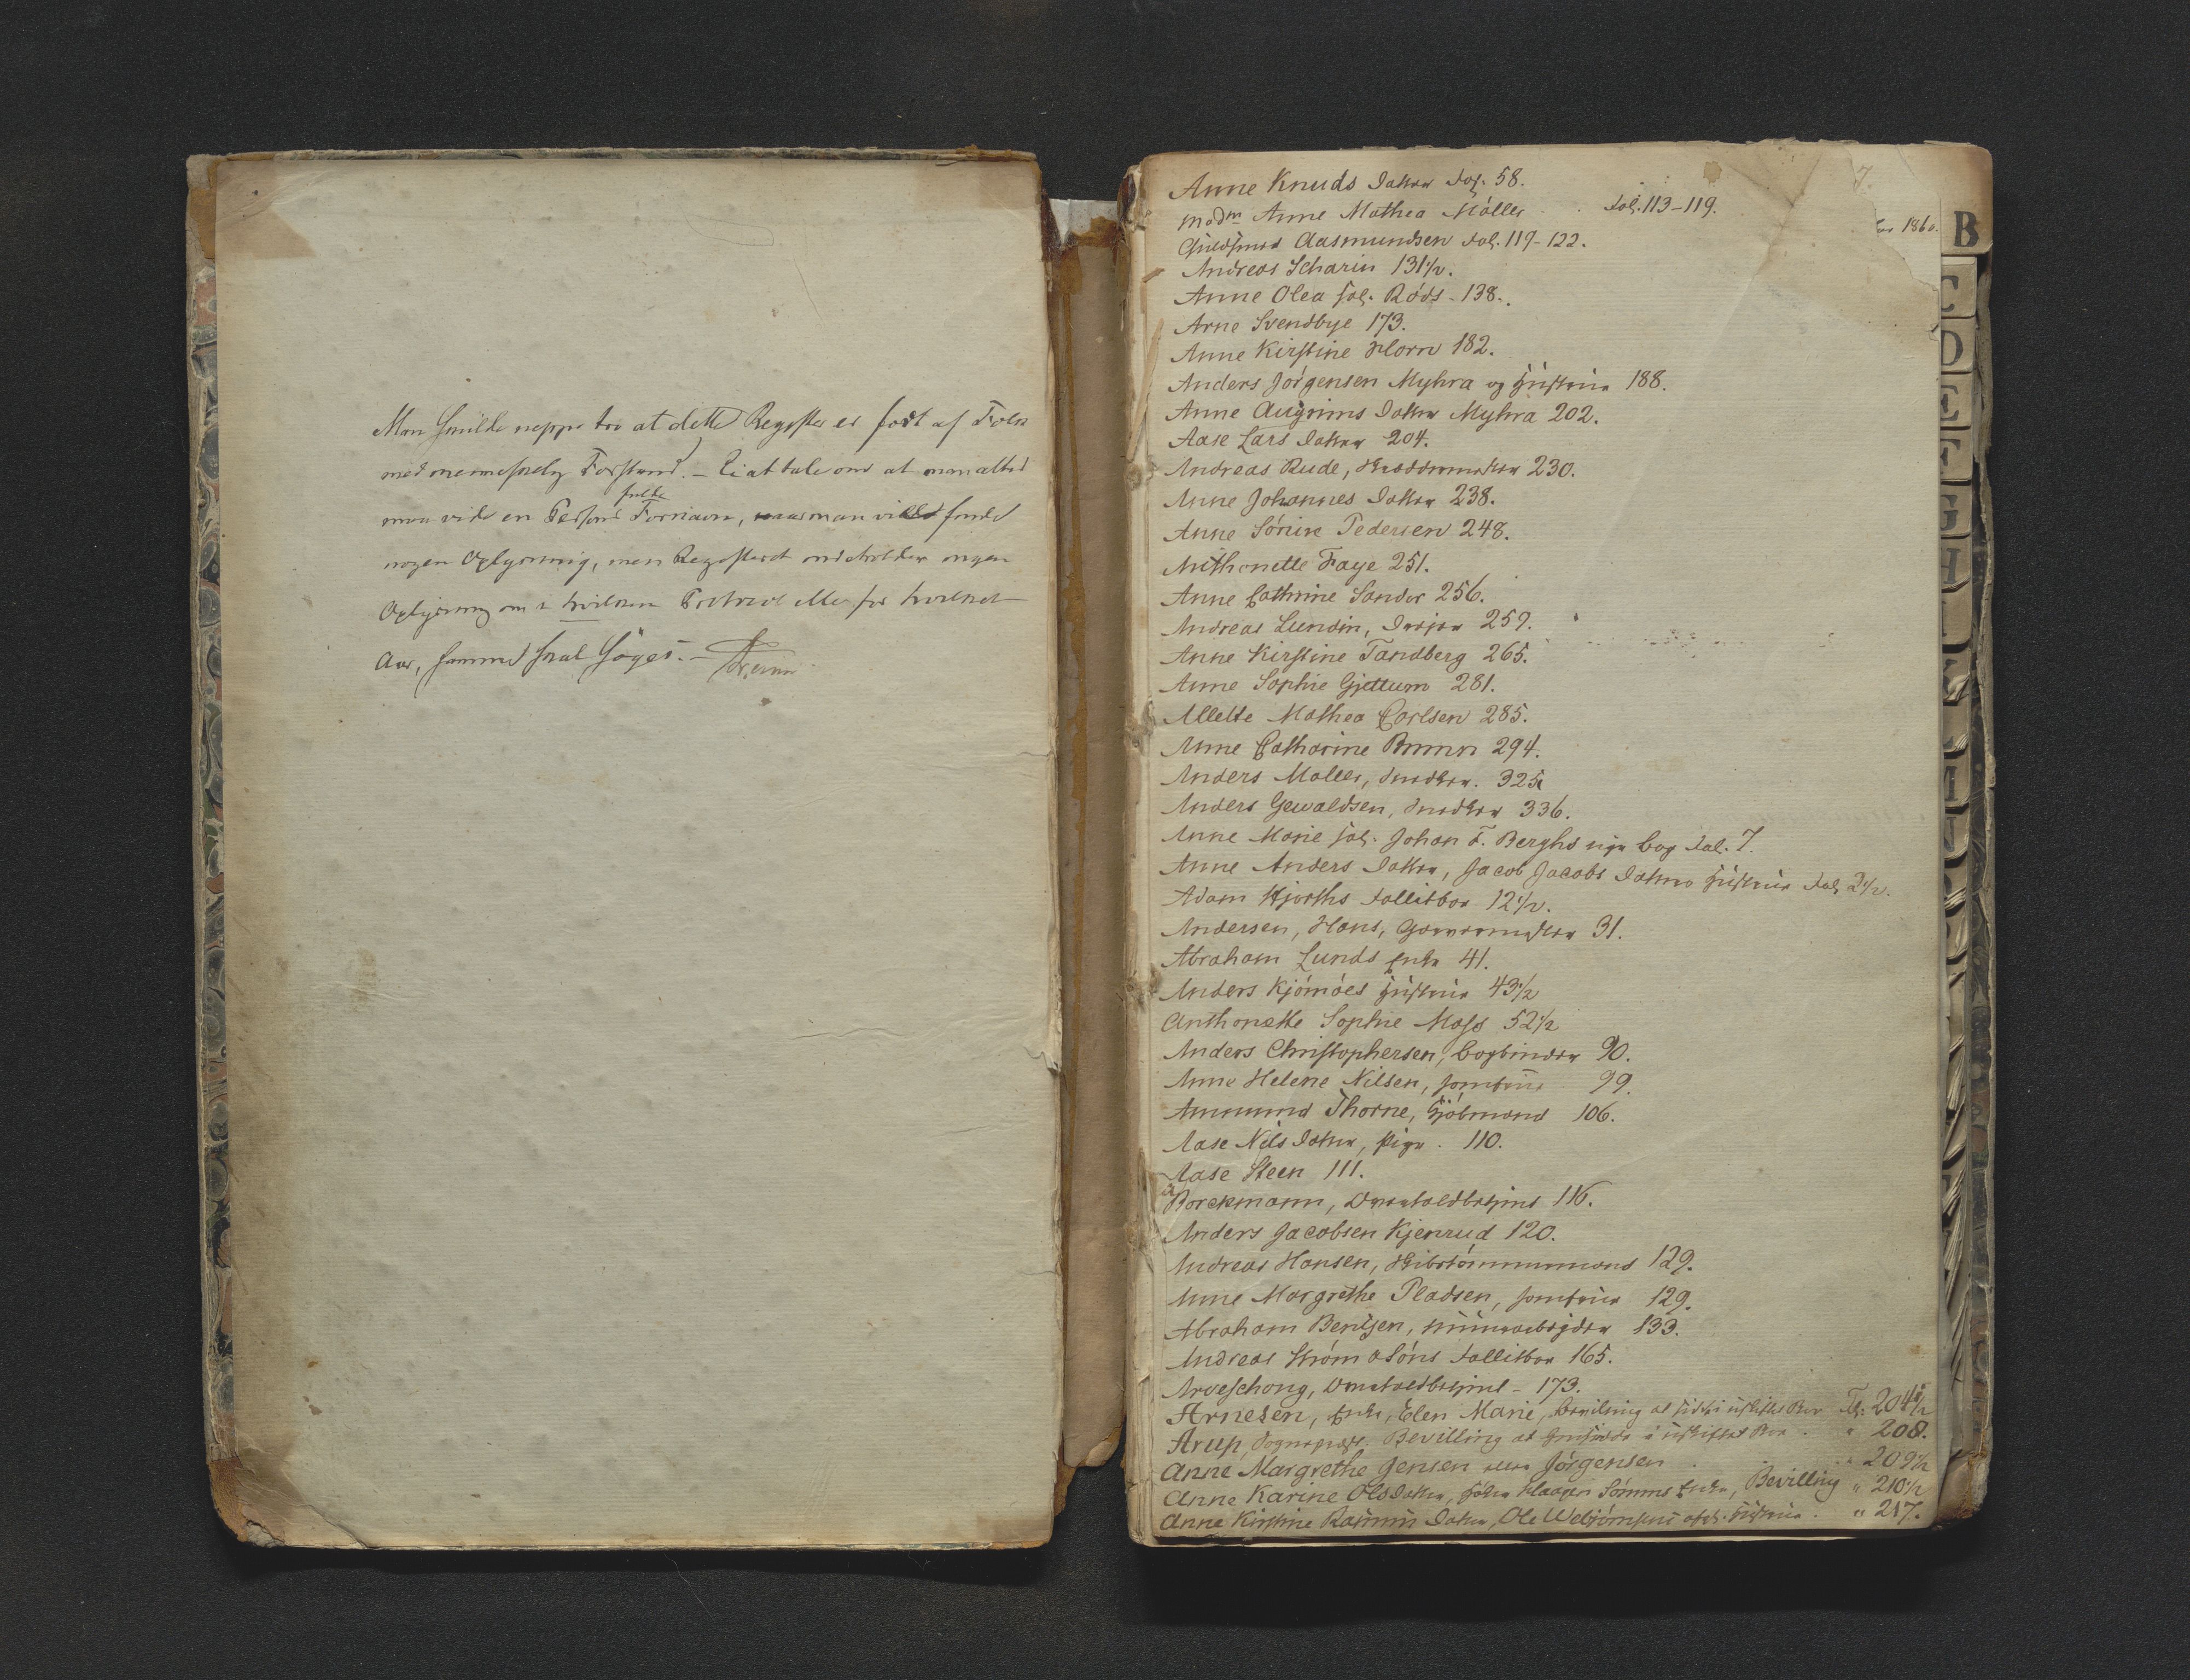 Man skulde neppe tro at dette Register er ført af Folk
med menneskelig Forstand. – Ei at tale om at man altid
maa vide en Persons fulde Fornavn, naar man vil finde
nogen Oplysning, men Registeret indeholder ingen
Oplysning om i hvilken Protocol eller for hvilket
Aar, samme skal søges. –
Anne Knuds Datter Fol. 58.
Mad<sup>m</sup> Anne Mathea Møller Fol. 113-119.
Guldsmed Aasmundsen Fol. 119-122.
Andreas Scharin 131½.
Anne Olea sal. Røds - 138.
Arne Svendbye 173.
Anne Kirstine Horn 182.
Anders Jørgensen Myhra og Hustrue 188.
Anne Augrims Datter Myhra 202.
Aase Lars Datter 204.
Andreas Rude, 230.
Anne Johannes Datter 238.
Anne Sørine Pedersen 248.
Anthonette Faye 251.
Anne Cathrine Sander 256.
Andreas Lundin, Drejer 259.
Anne Kirstine Tandberg 265.
Anne Sophie Gjettum 281.
Allette Mathea Carlsen 285.
Anne Catharine Brunn 294.
Anders Møller, Snedker. 325.
Anders Gewaldsen, Snedker 336.
Anne Marie sal. Johan F. Berghs nye Bog Fol. 7.
Anne Anders Datter, Jacob Jacobs Hustrue Fol. 2½.
Adam Hjorths Fallitboe 12½.
Andersen, Hans, 31.
Abraham Lunds Enke 41.
Anders Kjømøes Hustrue 43½
Anthonette Sophie Moss 52½
Anders Christophersen, Bogbinder 90.
Anne Helene Nilsen, Jomfrue 99.
Ammund Thorne, Sjøemand 106.
Aase Nils Datter, Pige. 110.
Aase Steen 111.
Borckmann, Overtoldbetjent 116.
Anders Jacobsen Kjenrud 120.
Andreas Hansen, Skibstømmermand 129.
Anne Margrethe Pladsen, Jomfrue 129.
Abraham Bentsen, Muurarbejder 133.
Andreas Strøm & Søns Fallitboe 165.
Arveschoug, Overtoldbetjent - 173.
Arnesen, Enke, Elen Marie, Bevilling at sidde i uskiftet Boe Fol. 204½
Arup, Sognepræst. Bevilling at hensidde i uskiftet Boe. " 208.
Anne Margrethe Jensen eller Jørgensen " 209½
Anne Karine Olsdatter, Enke, Bevilling " 210½
Anne Kirstine Datter, Ole afd. Hustrue. " 217.
7.
1860.
B
C
D
E
F
G
H
I
K
L